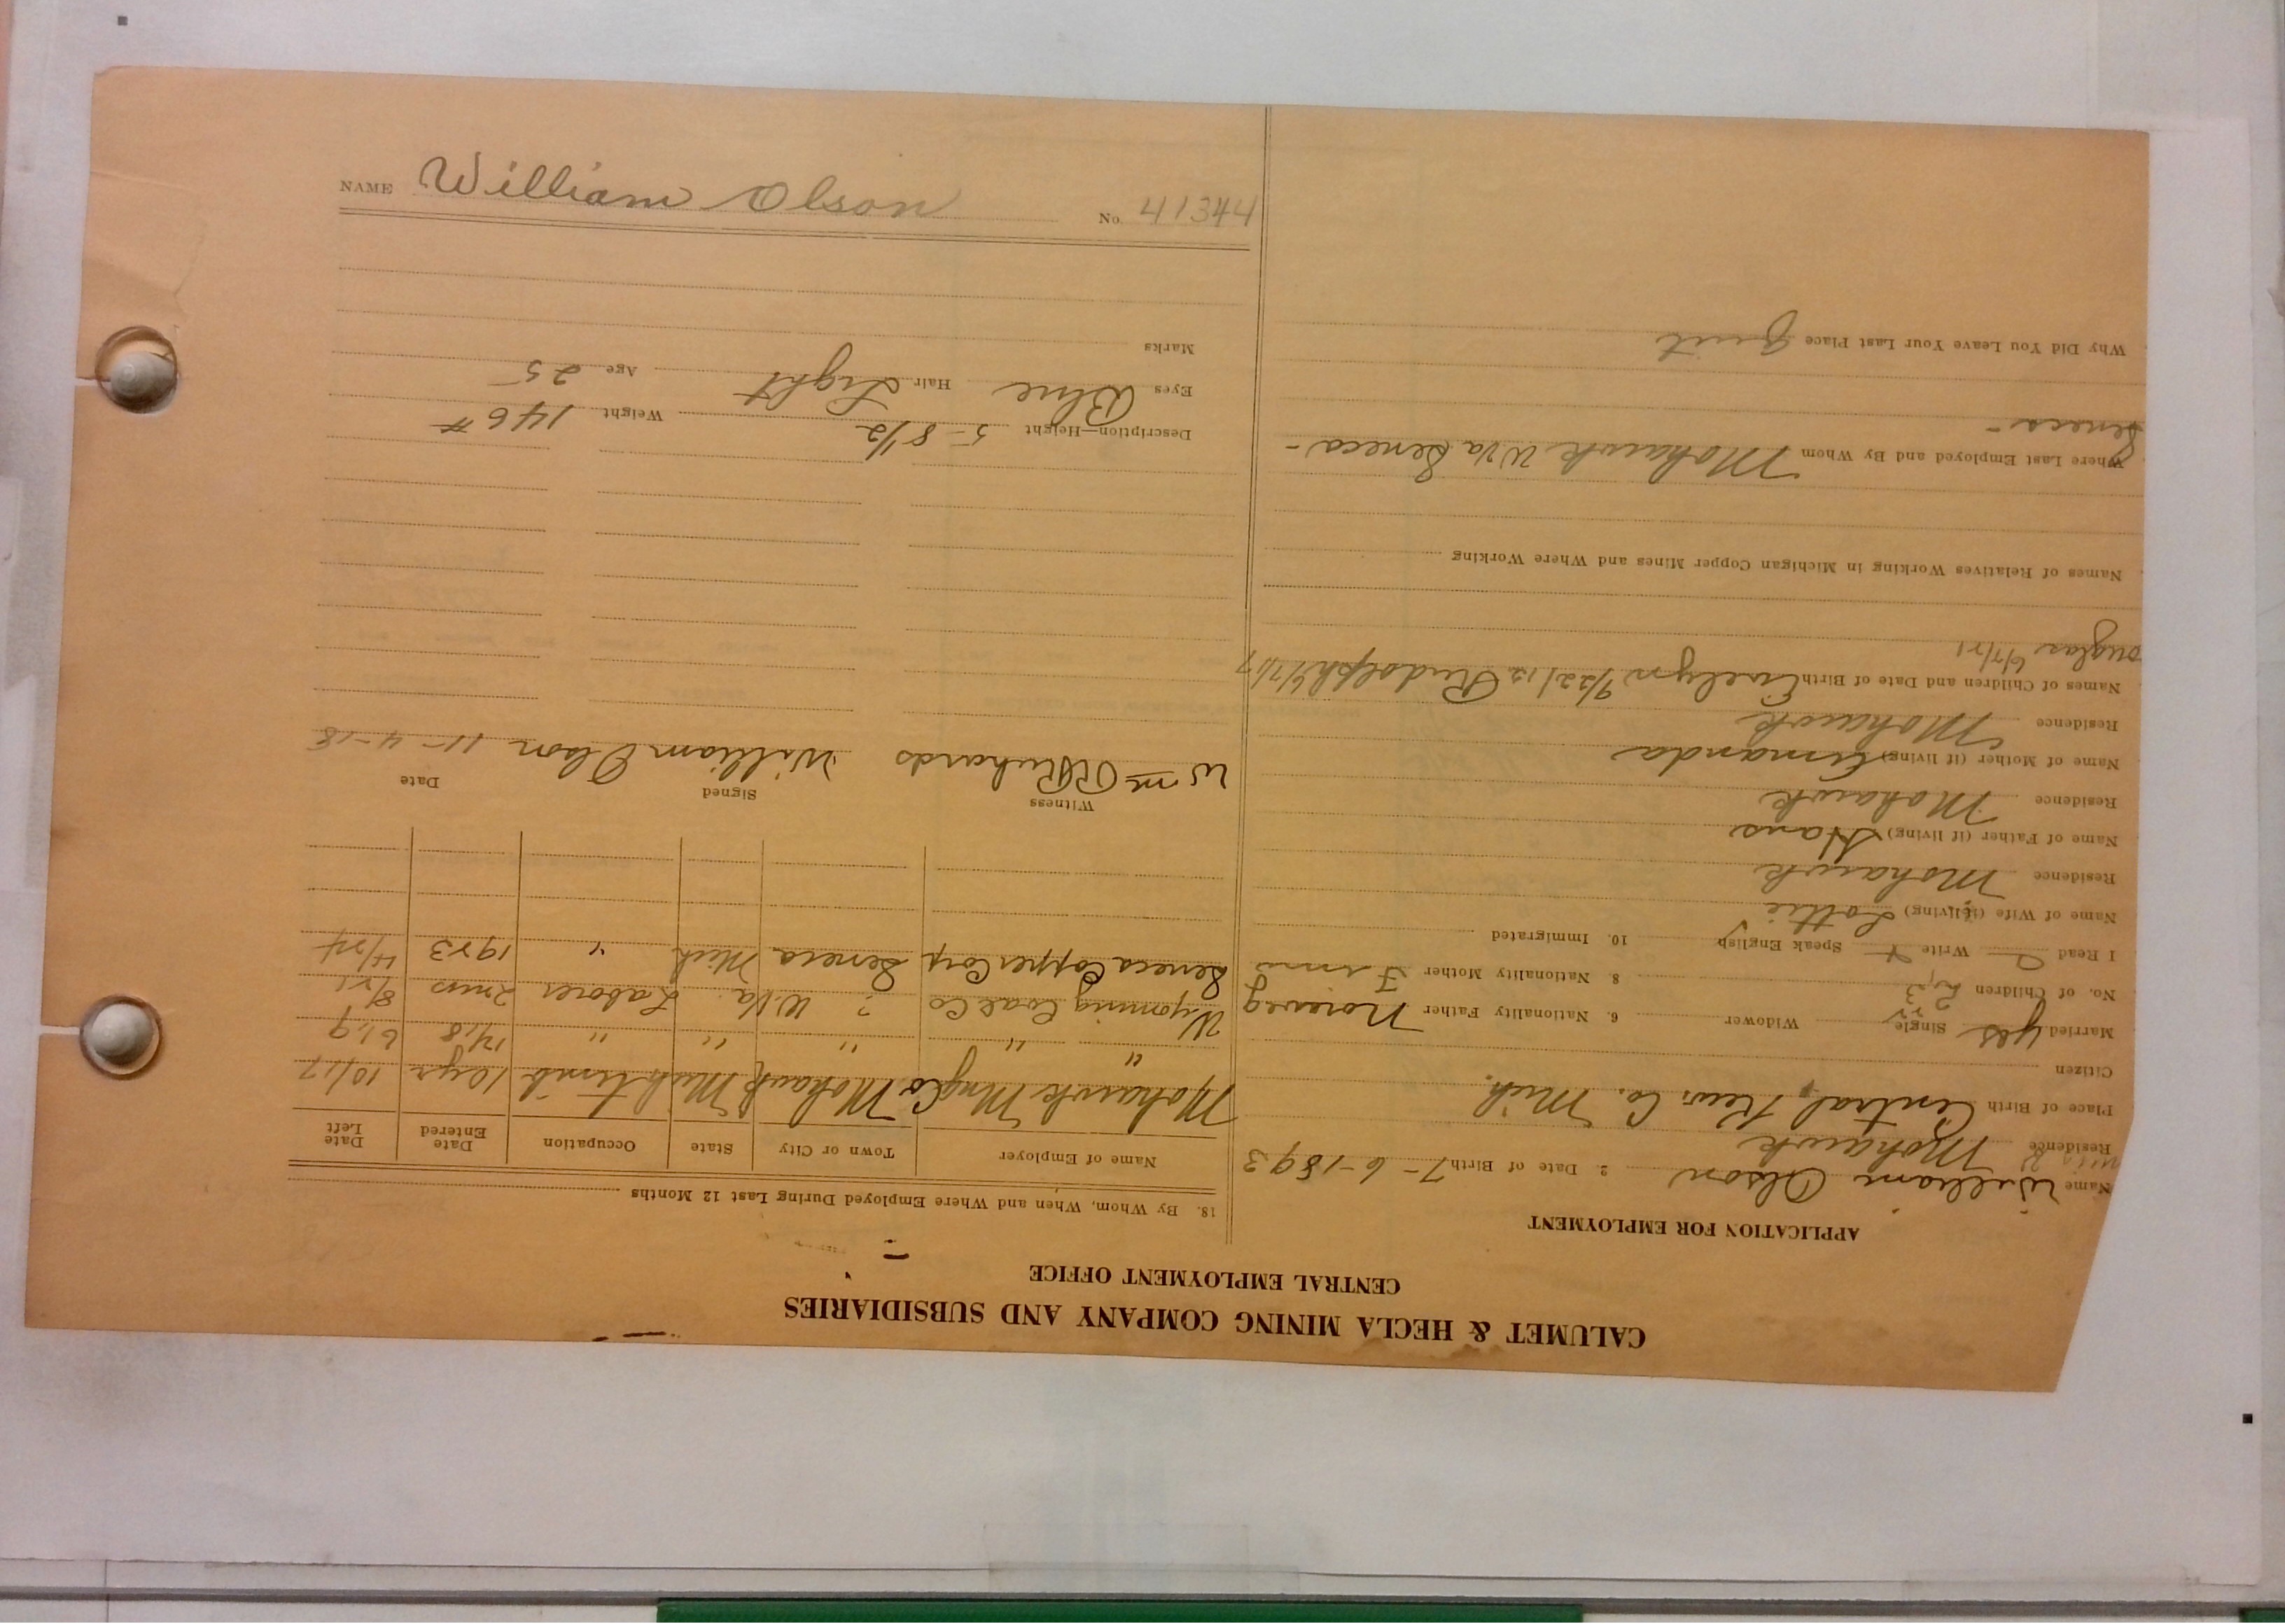 CALUMET & HECLA MINING COMPANY AND SUBSIDIARIES
CENTRAL EMPLOYMENT OFFICE
APPLICATION FOR EMPLOYMENT
Name William Olson 2. Date of Birth 7-6-1893
Residence Mohawk
Place of Birth Central, Kew. Co. Mich.
Citizen
Married yes Single Widower 6. Nationality Father Norweg
No. of Children 3 8. Nationality Mother Finn
I Read Write Speak English 10. Immigrated
Name of Wife (if living) Lottie
Residence Mohawk
Name of Father (if living) Hans
Residence Mohawk
Name of Mother (if living) Amanda
Residence Mohawk
Names of Children and Date of Birth Evelyn 9/22/12 Rudolph 6/7/17
ouglas 6/7/21
Names of Relatives Working in Michigan Copper Mines and Where Working
Where Last Employed and By Whom Mohawk W Va Seneca -
Seneca -
Why Did You Leave Your Last Place quit
18. By Whom, When and Where Employed During Last 12 Months
Name of Employer Town or City State Occupation Date Entered Date Left
Mohawk Mng Co Mohawk Mich timb 10yr 10/17
" " " " " 1418 619
Wyoming Coal Co ? W.Va. Laborer 2 mos 8/21
Seneca Copper Corp Seneca Mich " 1923 4/24
Witness Signed Date
Wm R Richards William Olson 11-4-18
Description—Height 5-8 1/2 Weight 146 #
Eyes Blue Hair Light Age 25
Marks
NAME William Olson No. 41344